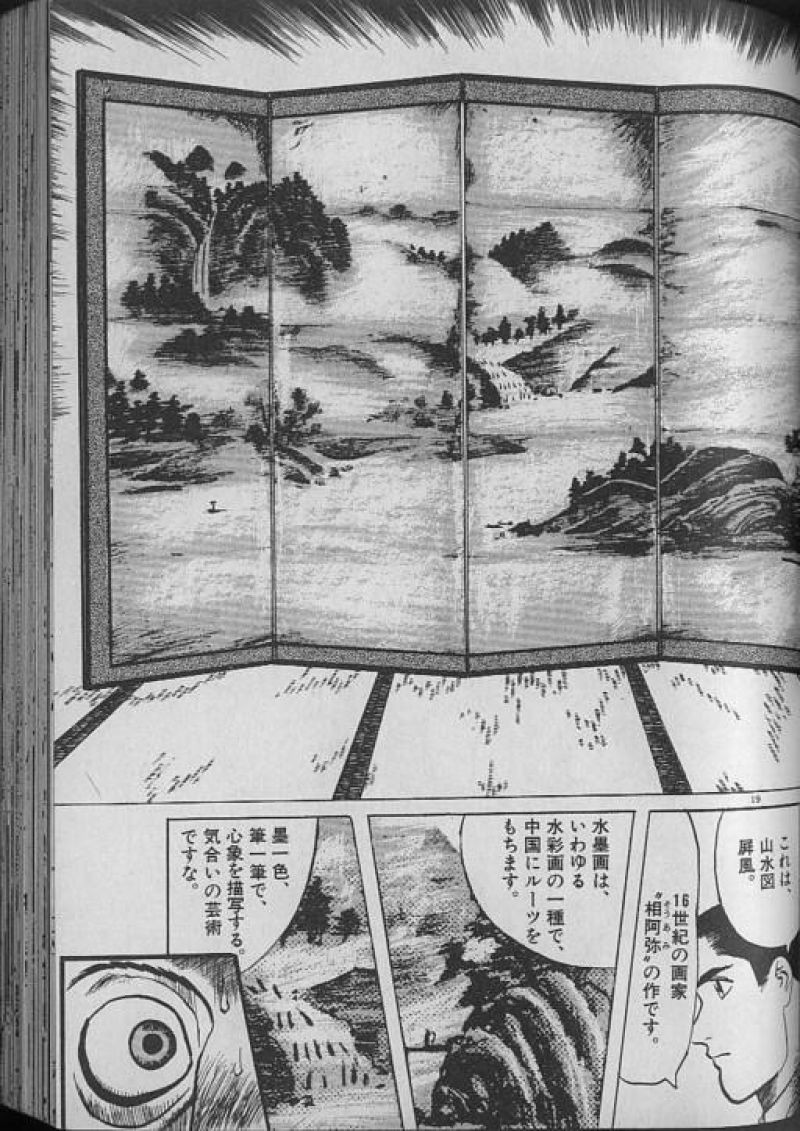 19
これは、
山水図
屏風。
16世紀の画家
〝相阿弥〟の作です。
そうあみ
水墨画は、
いわゆる
水彩画の一種で、
中国にルーツを
もちます。
墨一色、
筆一筆で、
心象を描写する。
気合いの芸術
ですな。